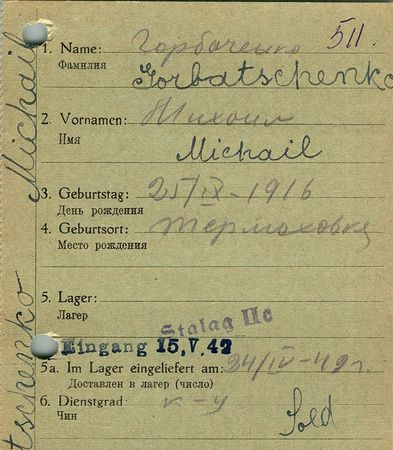 511.
1. Name: Горбаченко
Фамилия Gorbatschenko
2. Vornamen: Михаил
Имя
Michail
3. Geburtstag: 25/IX-1916
День рождения
4. Geburtsort: Термаховка
Место рождения
5. Lager:
Лагер
Stalag IIc
Eingang 15.V.42
5a. Im Lager eingeliefert am: 24/IV-42 г.
Доставлен в лагер (число)
6. Dienstgrad: к-у
Чин
Sold
Michail
tschenko